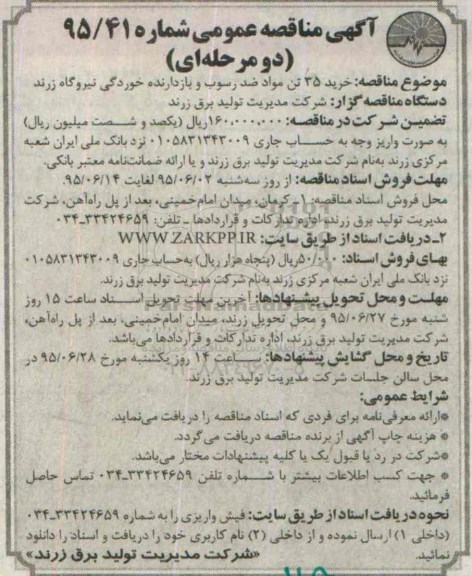 آگهی مناقصه عمومی شماره ۹۵/۴۱
(دو مرحله‌ای)
موضوع مناقصه: خرید ۳۵ تن مواد ضد رسوب و بازدارنده خوردگی نیروگاه زرند
دستگاه مناقصه گزار: شرکت مدیریت تولید برق زرند
تضمین شرکت در مناقصه: ۱۶۰,۰۰۰,۰۰۰ریال (یکصد و شصت میلیون ریال)
به صورت واریز وجه به حساب جاری ۰۱۰۵۸۳۱۳۴۳۰۰۹ نزد بانک ملی ایران شعبه
مرکزی زرند به‌نام شرکت مدیریت تولید برق زرند و یا ارائه ضمانت‌نامه معتبر بانکی.
مهلت فروش اسناد مناقصه: از روز سه‌شنبه ۹۵/۰۶/۰۲ لغایت ۹۵/۰۶/۱۴.
محل فروش اسناد مناقصه: ۱- کرمان، میدان امام‌خمینی، بعد از پل راه‌آهن، شرکت
مدیریت تولید برق زرند، اداره تدارکات و قراردادها ـ تلفن: ۳۳۴۲۴۶۵۹-۰۳۴
۲- دریافت اسناد از طریق سایت: WWW.ZARKPP.IR
بهای فروش اسناد: ۵۰/۰۰۰ریال (پنجاه هزار ریال) به‌حساب جاری ۰۱۰۵۸۳۱۳۴۳۰۰۹
نزد بانک ملی ایران شعبه مرکزی زرند به‌نام شرکت مدیریت تولید برق زرند.
مهلت و محل تحویل پیشنهادها: آخرین مهلت تحویل اسناد ساعت ۱۵ روز
شنبه مورخ ۹۵/۰۶/۲۷ و محل تحویل زرند، میدان امام‌خمینی، بعد از پل راه‌آهن،
شرکت مدیریت تولید برق زرند، اداره تدارکات و قراردادها می‌باشد.
تاریخ و محل گشایش پیشنهادها: ساعت ۱۴ روز یکشنبه مورخ ۹۵/۰۶/۲۸ در
محل سالن جلسات شرکت مدیریت تولید برق زرند.
شرایط عمومی:
*ارائه معرفی‌نامه برای فردی که اسناد مناقصه را دریافت می‌نماید.
* هزینه چاپ آگهی از برنده مناقصه دریافت می‌گردد.
*شرکت در رد یا قبول یک یا کلیه پیشنهادات مختار می‌باشد.
* جهت کسب اطلاعات بیشتر با شماره تلفن ۳۳۴۲۴۶۵۹-۰۳۴ تماس حاصل
فرمائید.
نحوه دریافت اسناد از طریق سایت: فیش واریزی را به شماره ۳۳۴۲۴۶۵۹-۰۳۴
(داخلی ۱) ارسال نموده و از داخلی (۲) نام کاربری خود را دریافت و اسناد را دانلود
نمائید.
«شرکت مدیریت تولید برق زرند»